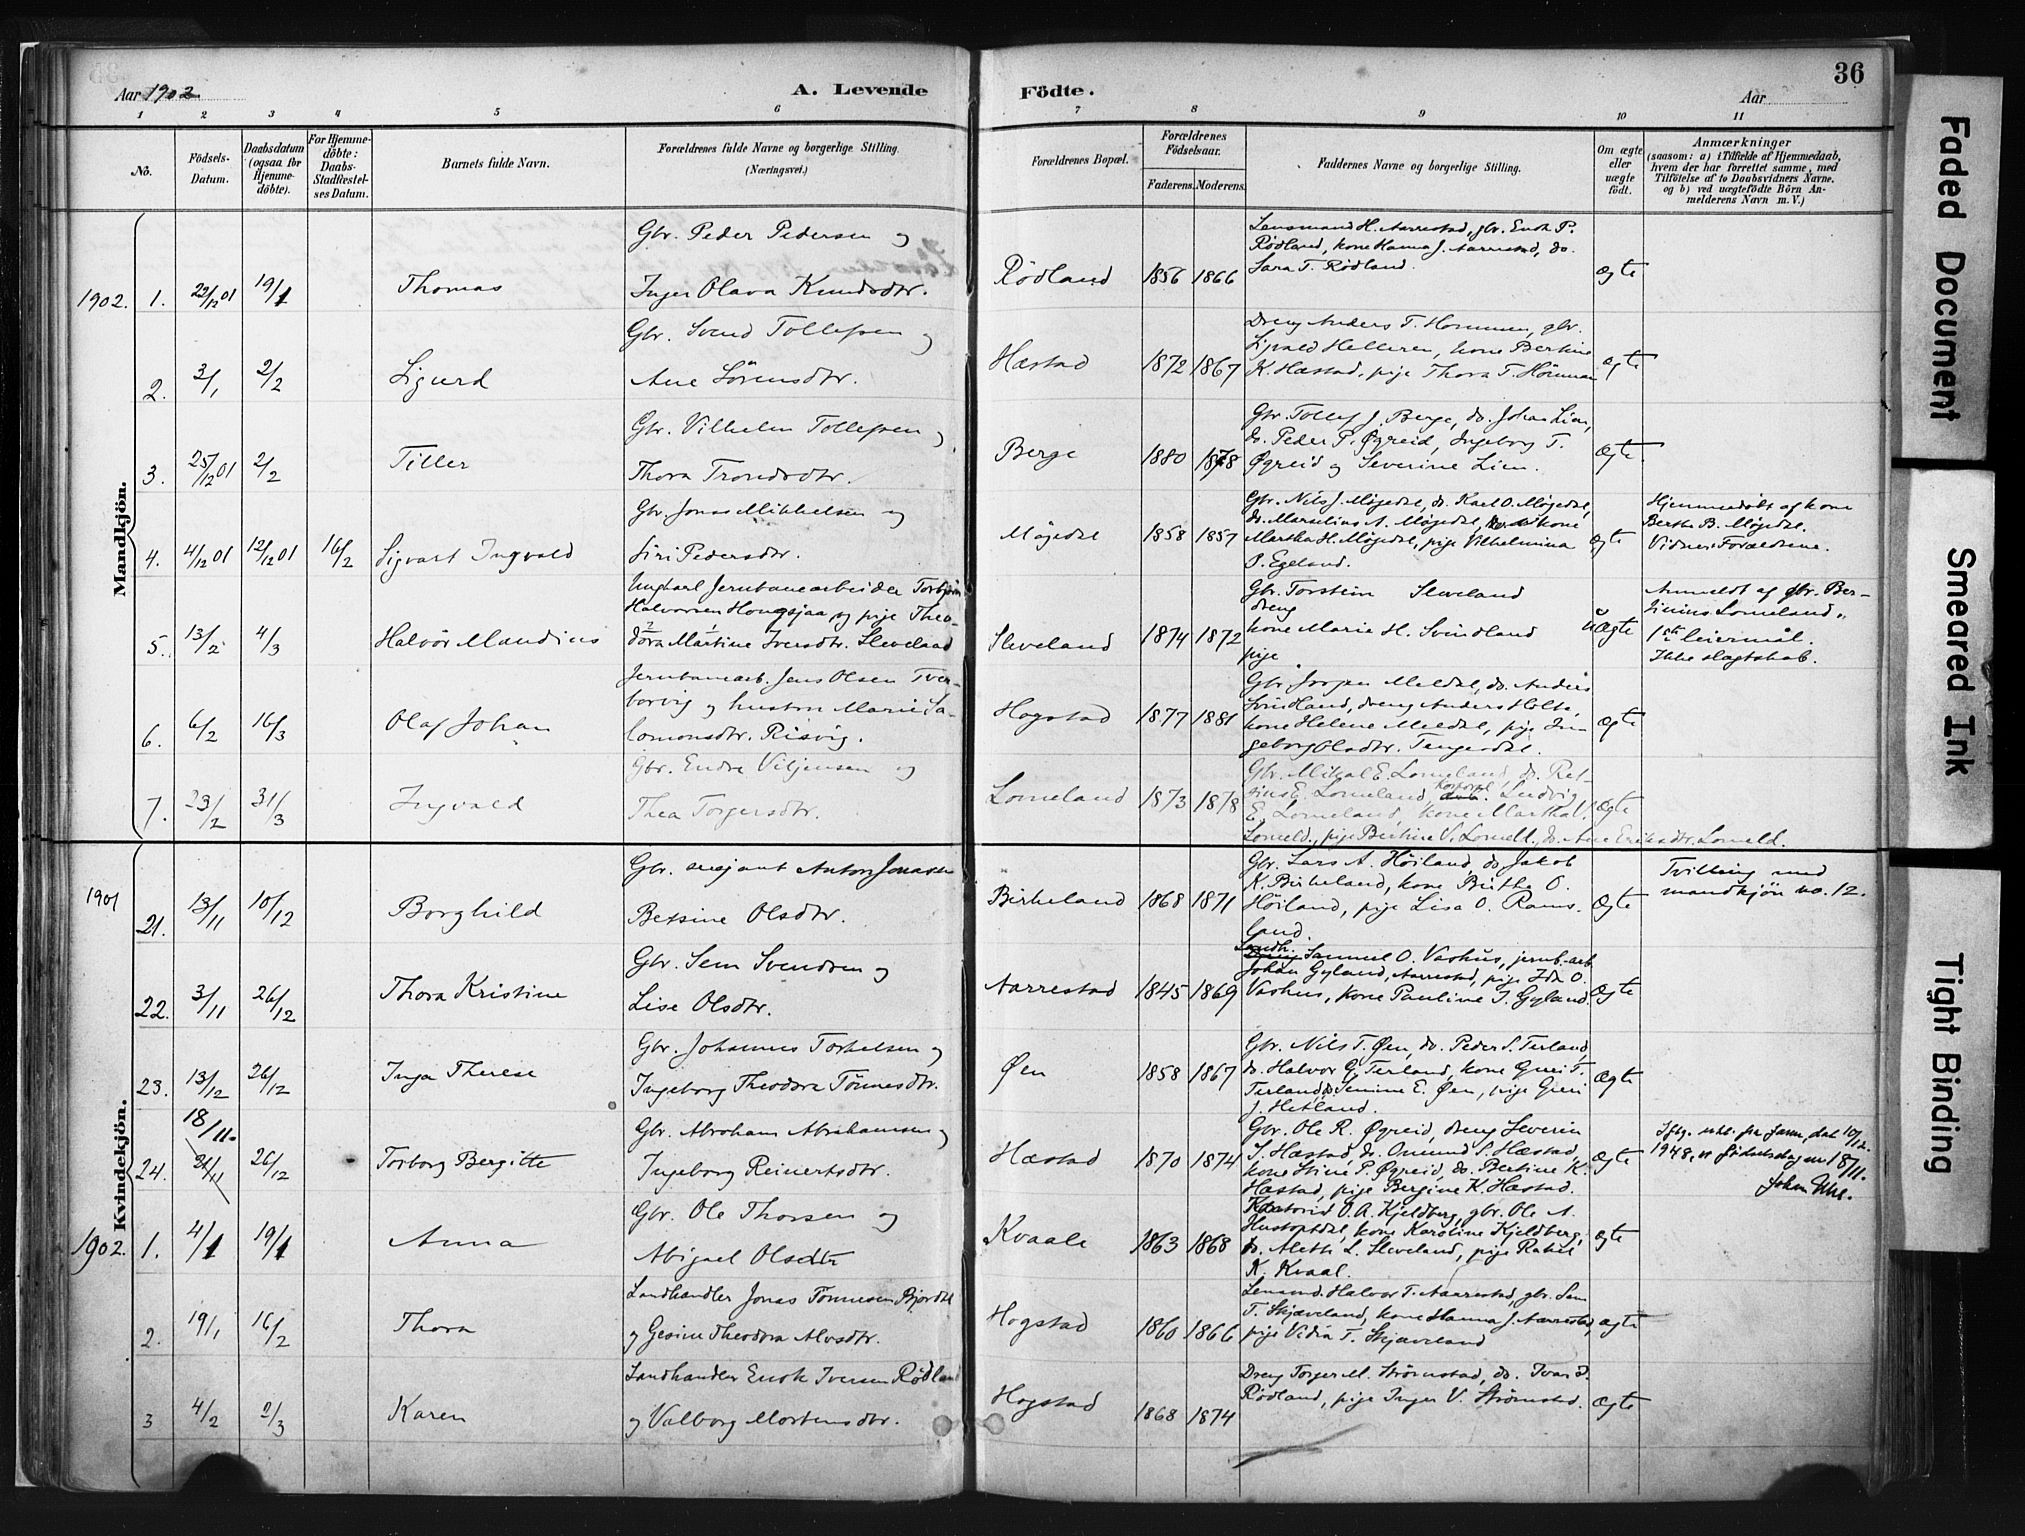 36
Aar 1902
A. Levende
Födte.
Aar
1 2 3 4 5 6 7 8 9 10 11
No.
Födsels-
Datum.
Daabsdatum
(ogsaa for
Hjemme-
döbte).
For Hjemme-
döbte:
Daabs-
Stadfæstel-
ses Datum.
Barnets fulde Navn.
Forældrenes fulde Navne og borgerlige Stilling.
(Næringsvei.)
Forældrenes Bopæl.
Forældrenes
Födselsaar.
Faderens. Moderens.
Faddernes Navne og borgerlige Stilling.
Om ægte
eller
uægte
födt.
Anmærkninger
(saasom: a) i Tilfælde af Hjemmedaab,
hvem der har forrettet samme, med
Tilföielse af to Daabsvidners Navne.
og b) ved uægtefödte Börn An-
melderens Navn m. V.)
Mandkjön.
1902. 1. 22/12 01 19/1 Thomas
Gbr. Peder Pedersen og
Inger Olava Knudsdtr.
Rødland 1856 1866
Lensmand H. Aarrestad, gbr. Enok P.
Rødland, kone Hanna J. Aarrestad, do.
Sara T. Rødland.
ægte
2. 3/1 2/2 Sigurd
Gbr. Svend Tollefsen og
Ane Sörensdtr.
Hæstad 1872 1867
Dreng Anders T. Hommen, gbr.
Sigvald Helleren, kone Bertine
K. Hæstad, pige Thora T. Hommen
ægte
3. 25/12 01 2/2 Tiller
Gbr. Vilhelm Tollefsen og
Thora Trondsdtr.
Berge 1880 1878
Gbr. Tollef J. Berge, do. Johan Lien,
do. Peder P. Øgreid, Ingeborg T.
Øgreid og Severine Lien.
Ægte
4. 4/12 01 12/12 01 16/2 Sigvart Ingvald
Gbr. Jonas Mikkelsen og
Siri Pedersdtr.
Møgedal 1858 1857
Gbr. Nils J. Møgedal, do. Karl O. Møgedal,
do. Marselius A. Møgedal, kone
Martha H. Møgedal, pige Vilhelmina
O. Egeland.
ægte
Hjemmedøbt af kone
Berthe B. Møgedal.
Vidner: Forældrene.
5. 13/2 4/3 Halvor Mandius
Ungkarl Jernbanearbeider Torbjörn
Halvorsen Hongsjaa og pige Theo-
dora Martine Iversdtr. Sleveland
Sleveland 1874 1872
Gbr. Torstein Sleveland
dreng
kone Marie H. Svindland
pige
uÆgte
Anmeldt af gbr. Ber-
tinius Lomeland.
1ste leiermål.
Ikke slægtskab.
6. 6/2 16/3 Olaf Johan
Jernbanearb. Jens Olsen Tver-
borvig og hustru Marie Sa-
lomonsdtr. Risvig.
Hogstad 1877 1881
Gbr. Jørgen Meldal, do. Anders
Svindland, dreng Anders Holte,
kone Helene Meldal, pige In-
geborg Olsdtr. Tengesdal.
Ægte
7. 23/2 31/3 Ingvald
Gbr. Endre Viljensen og
Thea Torgersdtr.
Lomeland 1873 1878
Gbr. Mikal E. Lomeland, do. Ret-
sius E. Lomeland, Korporal Ludvig
E. Lomeland, kone Martha
Lomeld., pige Bertine V. Lomeld., do. Ane Eriksdtr. Lomeld.
Ægte
Kvindekjön.
1901 21. 13/11 10/12 Borghild
Gbr. serjant Anton Jonassen
Betsine Olsdtr.
Birkeland 1868 1871
Gbr. Lars A. Höiland, do. Jakob
K. Birkeland, kone Birthe O.
Höiland, pige Lisa O. Rams-
land.
Ægte
Tvilling med
mandkjön no. 12.
22. 3/11 26/12 Thora Kristine
Gbr. Sem Svendsen og
Lise Olsdtr.
Aarrestad 1845 1869
Landh. Samuel O. Vashus, jernb.arb.
Johan Gyland, Aarrestad, pige Ida O.
Vashus, kone Pauline J. Gyland.
Ægte
23. 13/12 26/12 Inga Therese
Gbr. Johannes Torkelsen og
Ingeborg Theodora Tönnesdtr.
Øen 1858 1867
Gbr. Nils T. Øen, do. Peder S. Terland,
do. Halvor G. Terland, kone Guri T.
Terland, do. Semine E. Øen, pige Guri
J. Hetland.
Ægte
24. 18/11. 21/11 26/12 Torborg Bergitte
Gbr. Abraham Abrahamsen og
Ingeborg Reinertsdtr.
Hæstad 1870 1874
Gbr. Ole R. Øgreid, dreng Severin
S. Hæstad, do. Omund S. Hæstad,
kone Stine P. Øgreid, do. Bertine K.
Hæstad, pige Bergine K. Hæstad.
Ægte
Iflg. erkl. fra Jørm. dat 10/12
1948, er fødselsdagen 18/11.
1902. 1. 4/1 19/1 Anna
Gbr. Ole Thorsen og
Abigael Olsdtr
Kvaale 1863 1868
O. A. Kjeldberg, gbr. Ole A.
Hustoftdal, kone Karoline Kjeldberg,
do. Aleth L. Sleveland, pige Rakel
K. Kvaal.
ægte
2. 19/1 16/2 Thora
Landhandler Jonas Tönnesen Bjordal
og Gesine Theodora Alvsdtr.
Hogstad 1860 1866
Lensmd. Halvor T. Aarrestad, gbr. Sem
T. Skjæveland, kone Hanna J. Aarrestad,
pige Vidia T. Skjæveland
ægte
3 4/2 9/3 Karen
Landhandler Enok Iversen Rødland
og Valborg Mortensdtr.
Hogstad 1868 1874
Dreng Torger M. Strømstad, do. Ivar I.
Rødland, pige Inger V. Strømstad.
Ægte
Faded Document
Smeared Ink
Tight Binding